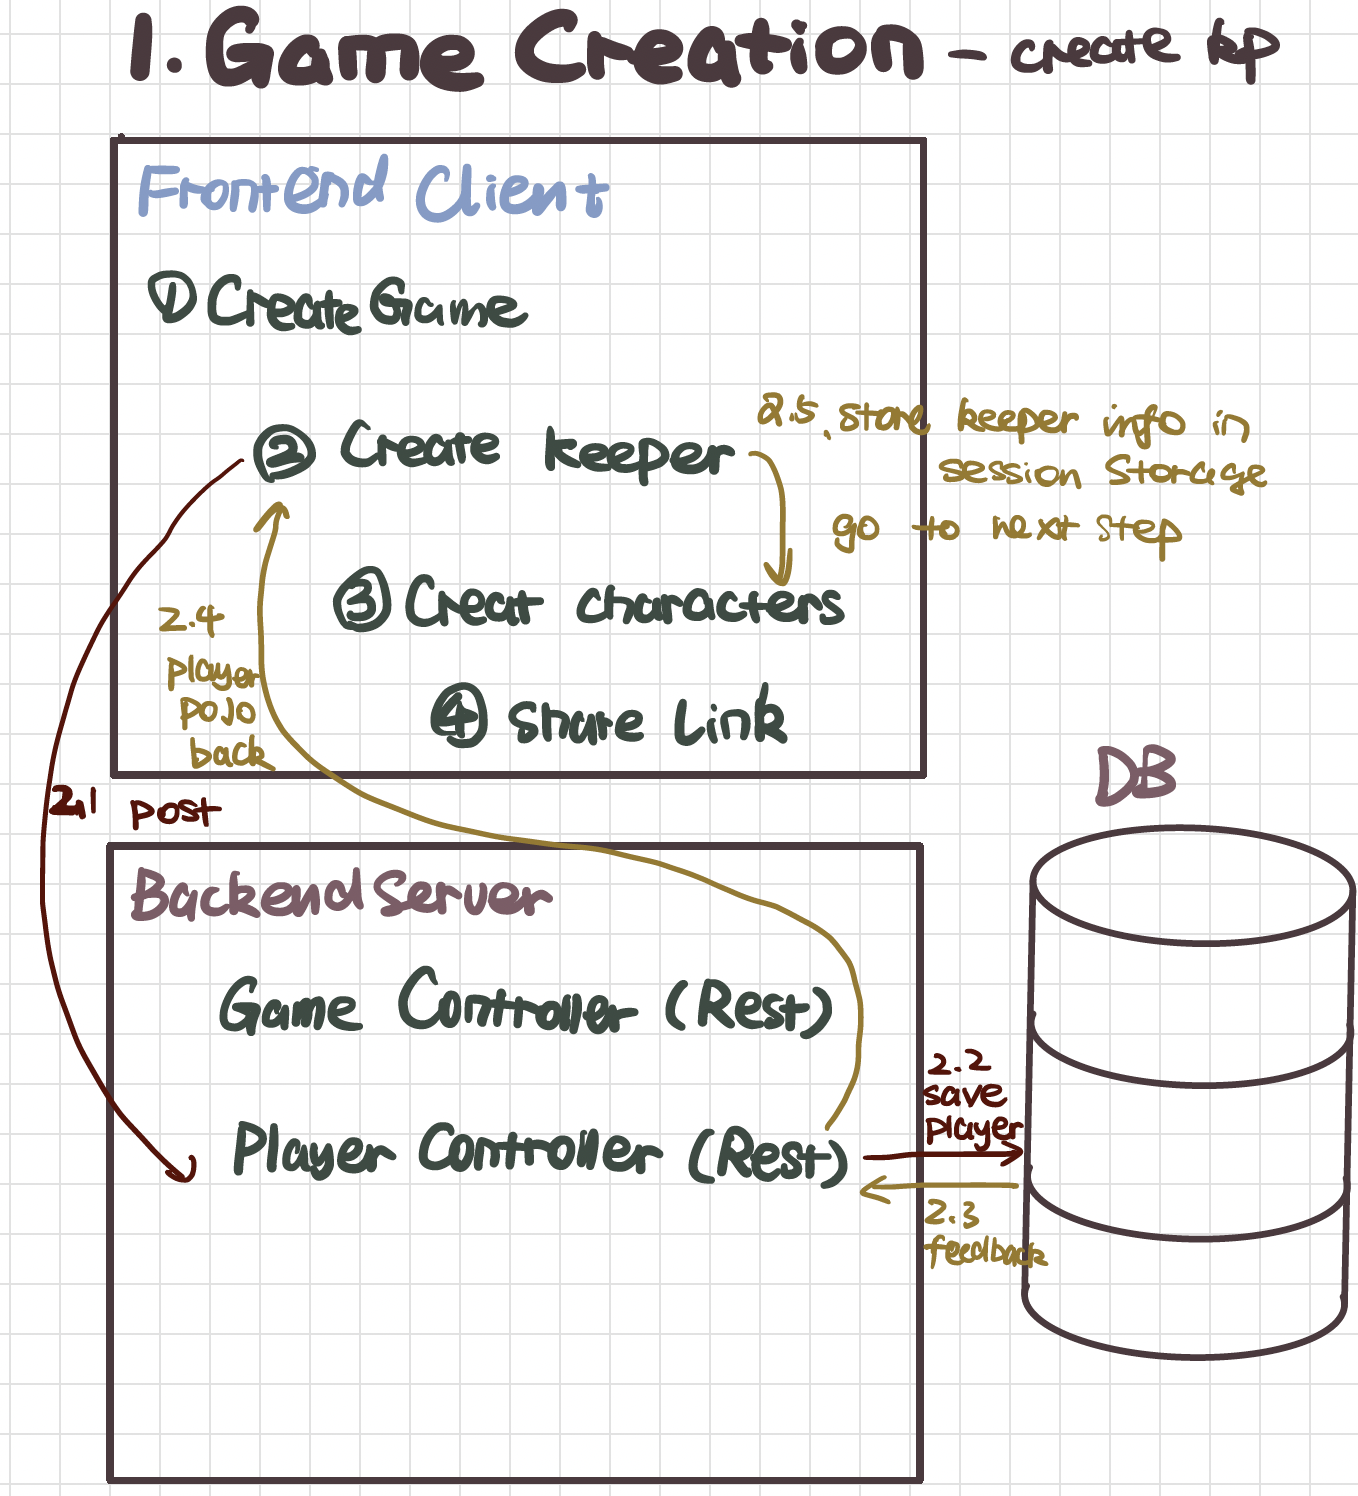 1. Game Creation - create kp
Frontend Client
① Create Game
② Create keeper
2.5. store keeper info in
session storage
go to next step
③ Creat characters
2.4
player
POJO
back
④ Share Link
DB
2.1 post
Backend Server
Game Controller (Rest)
2.2
save
player
Player Controller (Rest)
2.3
feedback